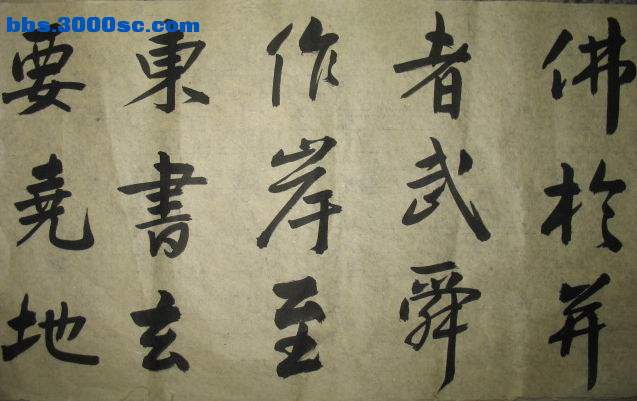 bbs.3000sc.com
佛於并
者武舜
作岸至
東書玄
要堯地